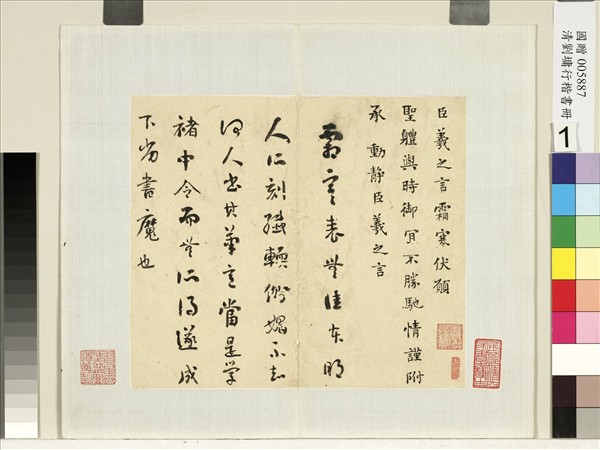 國贈 005887
清劉墉行楷書冊
1
臣羲之言霜寒伏願
聖體與時御冝不勝馳情謹附
承動靜臣羲之言
霜寒表無佳本明
人所刻輭俗媚不知
何人書其筆意當是學
褚中令而無所得遂成
下劣書魔也